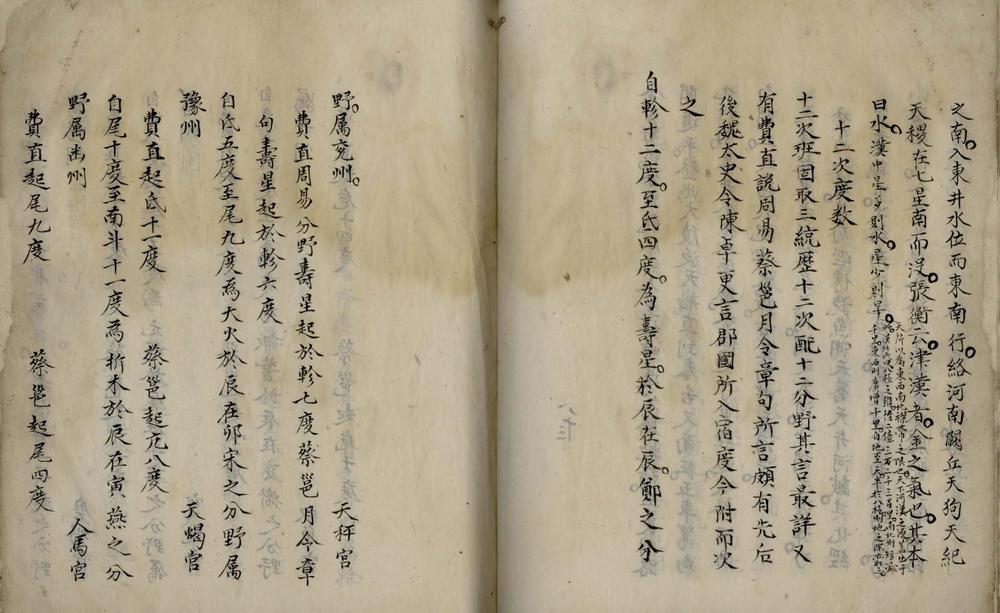 之南入東井水位而東南行絡河南闕丘天狗天紀
天稷在七星南而没張衡云津漢者金之氣也其本
曰水漢中星多則水星少則旱
十二次度数
十二次班固取三統歴十二次配十二分野其言最詳又
有費直説周易蔡邕月令章句所言頗有先后
後魏太史令陳卓更言郡國所入宿度今附而次
之
自軫十二度至氐四度為壽星於辰在辰鄭之分
野属兖州 天秤宮
費直周易分野壽星起於軫七度蔡邕月令章
句壽星起於軫六度
自氐五度至尾九度為大火於辰在卯宋之分野属
豫州 天蝎宮
費直起氐十一度 蔡邕起亢八度
自尾十度至南斗十一度為析木於辰在寅燕之分
野属幽州 人馬宮
費直起尾九度 蔡邕起尾四度